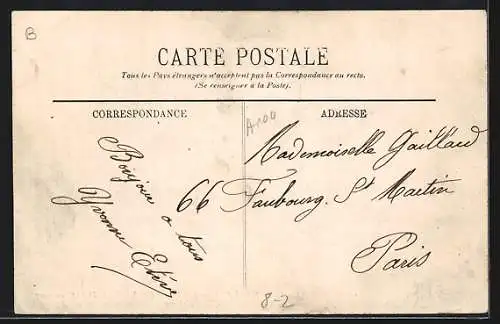 B
CARTE POSTALE
Tous les Pays étrangers n'acceptent pas la Correspondance au recto.
(Se renseigner à la Poste).
CORRESPONDANCE
Bonjour a tous
Yvonne
A100
ADRESSE
Mademoiselle Gaillard
66 Faubourg. St Martin
Paris
8-2